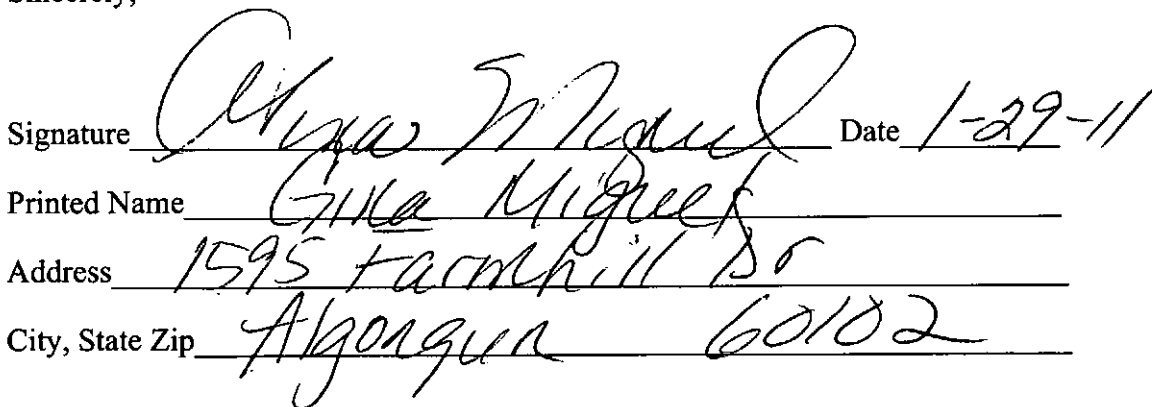 Sincerely,
Signature Gina Miguel Date 1-29-11
Printed Name Gina Miguel
Address 1595 Farmhill Dr
City, State Zip Algonquin 60102